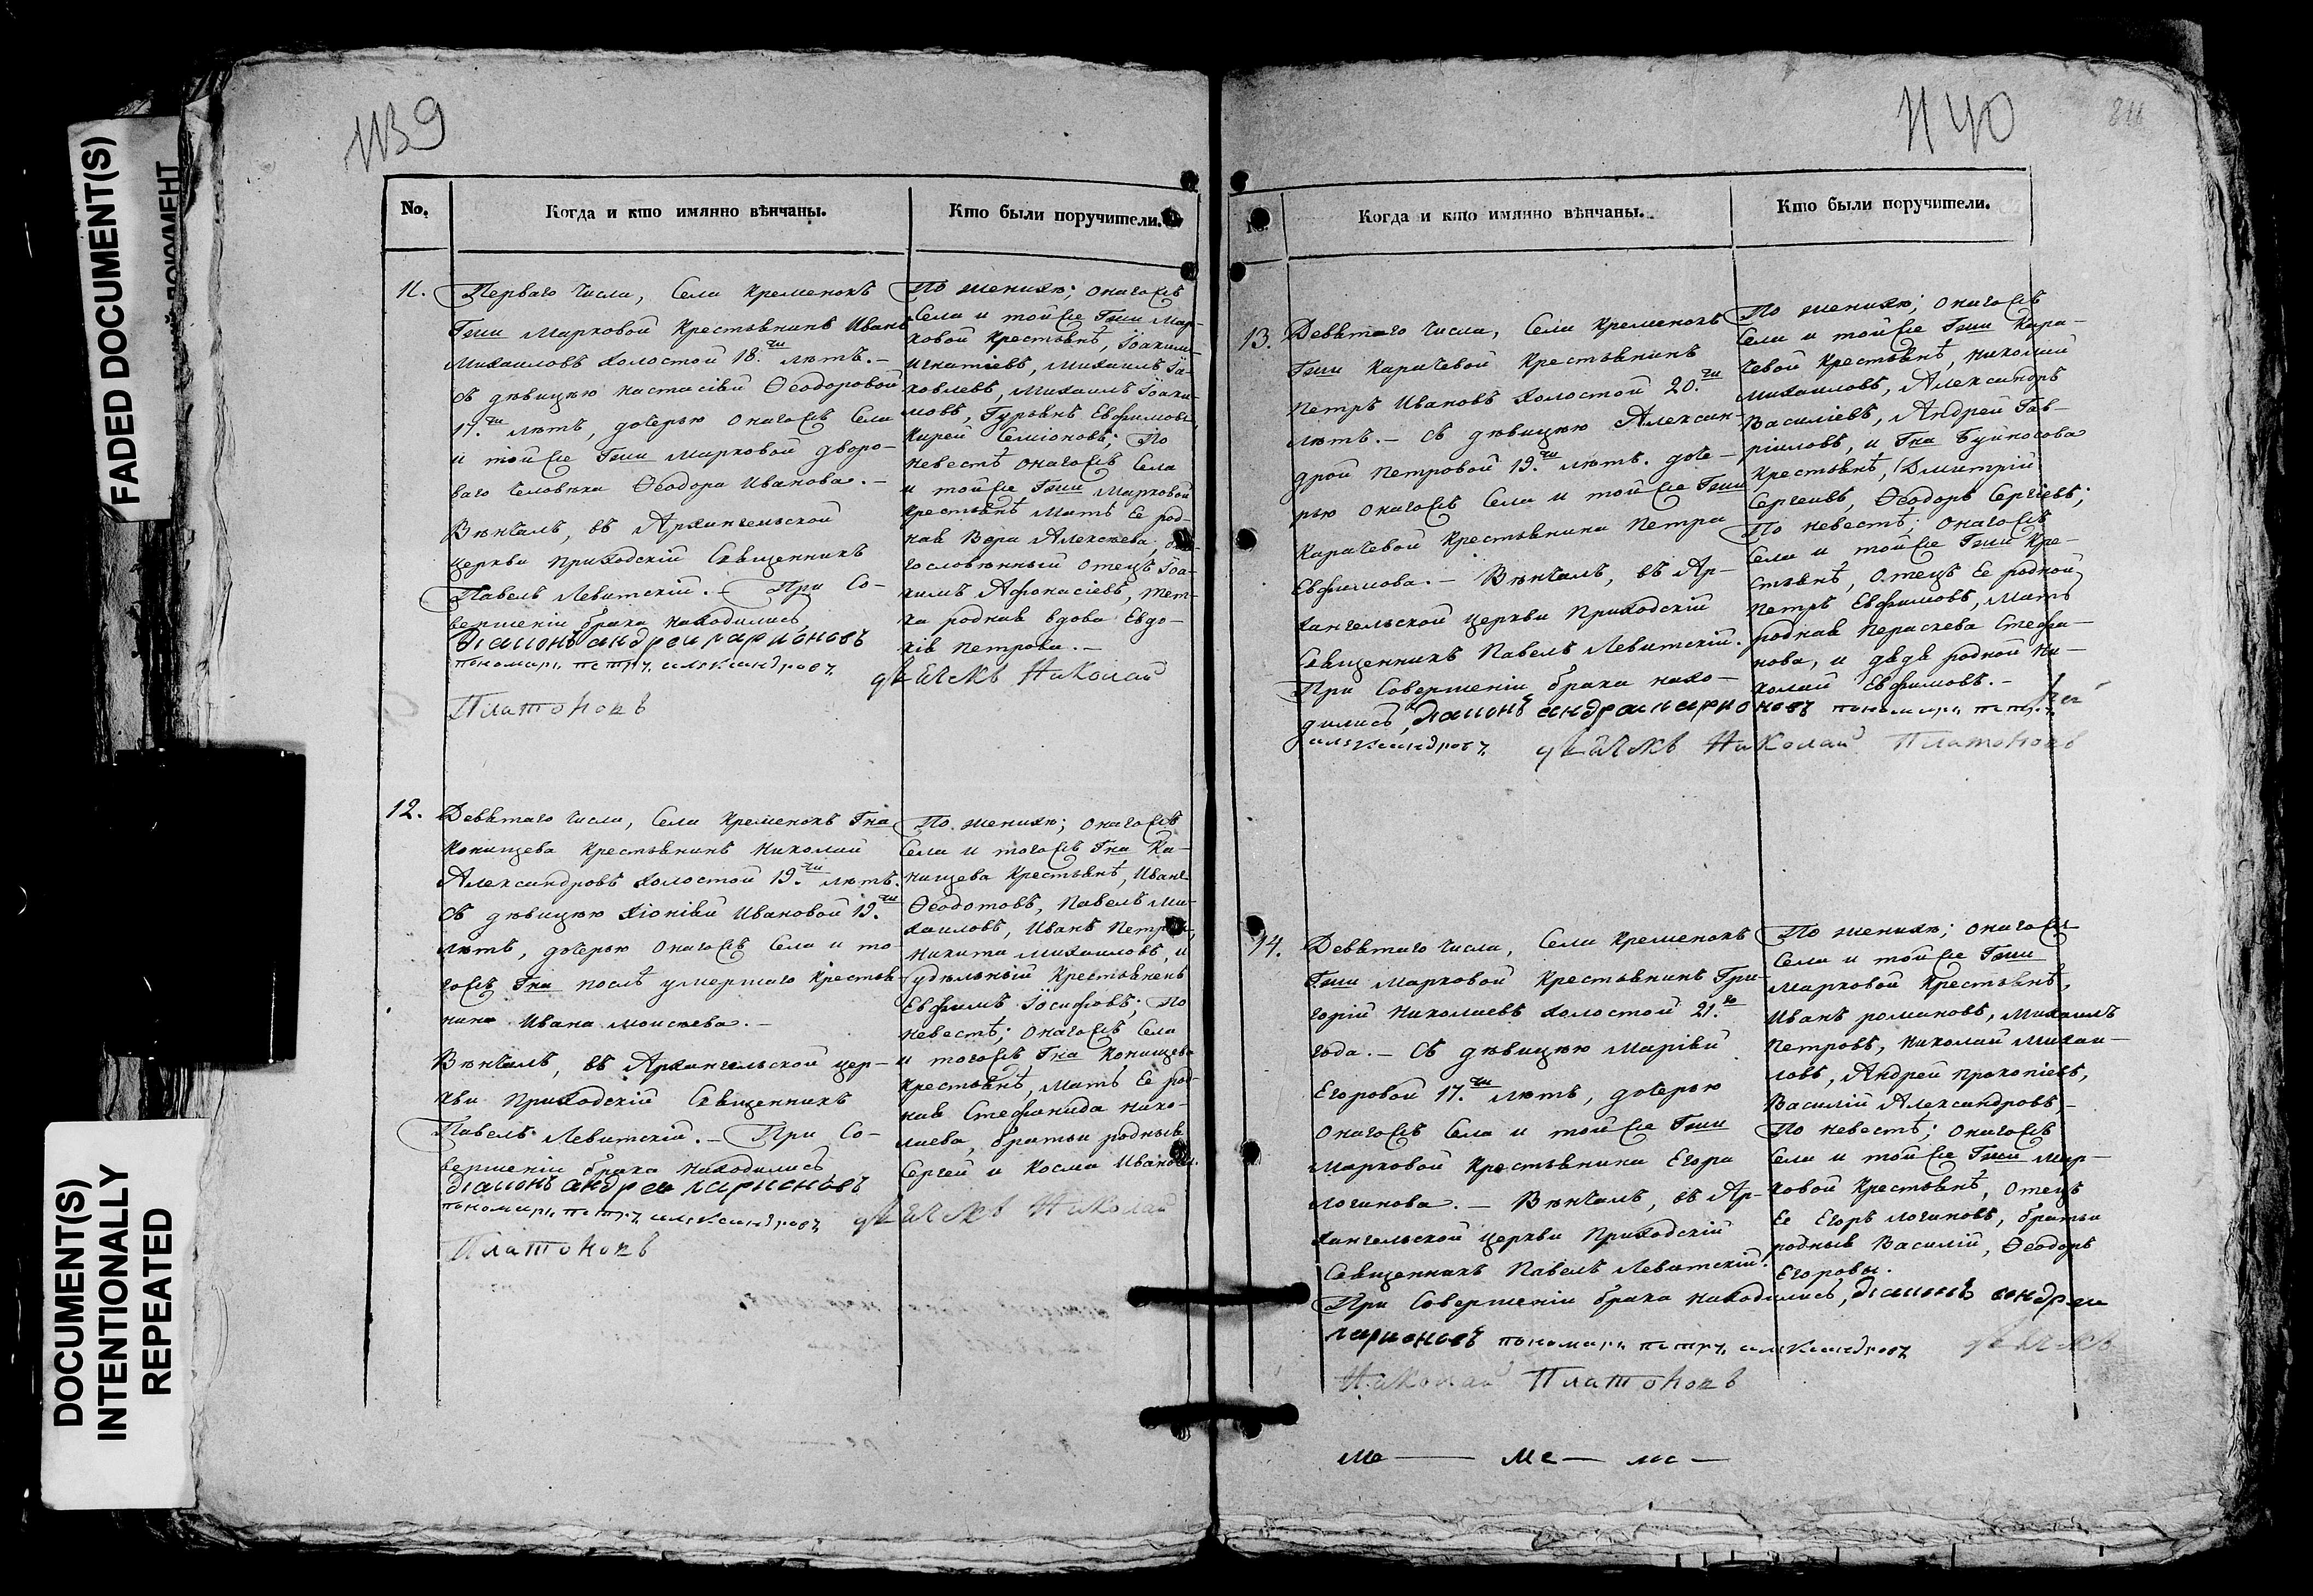 FADED DOCUMENT(S)
ДОКУМЕНТ
DOCUMENT(S)
INTENTIONALLY
REPEATED
1139
No.
Когда и кто имянно вѣнчаны.
Кто были поручители.
11.
Перваго числа, Села Кременокъ
Гжи Марковой Крестьянинъ Иванъ
Михаиловъ холостой 18.ти лѣтъ. –
Съ дѣвицею Настасіей Ѳеодоровой
17.ти лѣтъ, дочерью онагожъ Села
и тойже Гжи Марковой дворо-
ваго человѣка Ѳеодора Иванова. –
Вѣнчалъ, въ Архангельской
церкви Приходскій Священникъ
Павелъ Левитскій. – При Со-
вершеніи брака находились,
диаконъ андреи ларионовъ
пономарь петръ александровъ
дьячекъ Николай
Платоновъ
По женихѣ; онагожъ
Села и тойже Гжи Мар-
ковой Крестьянѣ, Іоакимъ
Игнатіевъ, Михаилъ Іа-
ковлевъ, Михаилъ Іоаки-
мовъ, Гурьянъ Евфимовъ,
Кирей Семіоновъ; По
невестѣ онагожъ Села
и тойже Гжи Марковой
Крестьянѣ Мать Ее род-
ная Вера Алексѣева,
гословенный отецъ Іоа-
кимъ Афонасіевъ, тет-
ка родная вдова Евдо-
кія Петрова. –
12.
Девятаго числа, Села Кременокъ Гна
Конищева Крестьянинъ Николай
Александровъ холостой 19.ти лѣтъ.
Съ дѣвицею Хіоніей Ивановой 19.ти
лѣтъ, дочерью онагожъ Села и то-
гожъ Гна послѣ умершаго Крестья-
нина Ивана Моисѣева. –
Вѣнчалъ, въ Архангельской цер-
кви Приходскій Священникъ
Павелъ Левитскій. – При Со-
вершеніи брака находились,
диаконъ андреи ларионовъ
пономарь петръ александровъ
дьячекъ Николай
Платоновъ
По женихѣ; онагожъ
Села и тогожъ Гна Ка-
нищева Крестьянѣ, Иванъ
Ѳеодотовъ, Павелъ Ми-
хаиловъ, Иванъ Петровъ,
Никита Михаиловъ, и
удѣльный Крестьяненъ
Евфимъ Іосифовъ; По
невестѣ; онагожъ Села
и тогожъ Гна Конищева
Крестьянѣ, Мать Ее род-
ная Стефанида Нико-
лаева, братьи родныя
Сергей и Косма Ивановы.
1140
No.
Когда и кто имянно вѣнчаны.
Кто были поручители.
13.
Девятаго числа, Села Кременокъ
Гжи Карачевой Крестьянинъ
Петръ Ивановъ холостой 20.ти
лѣтъ. – Съ дѣвицею Алексан-
дрой Петровой 19.ти лѣтъ. доче-
рью онагожъ Села и тойже Гжи
Карачевой Крестьянина Петра
Евфимова. – Вѣнчалъ, въ Ар-
хангельской церкви Приходскій
Священникъ Павелъ Левитскій.
При Совершеніи брака нахо-
дились, диаконъ андреи ларионовъ пономарь петръ
александровъ дьячекъ Николай Платоновъ
По женихѣ; онагожъ
Села и тойже Гжи Кара-
чевой Крестьянѣ, Николай
Михаиловъ, Александръ
Василіевъ, Андрей Гав-
ріиловъ, и Гна Буйносова
Крестьянѣ, Дмитрій
Сергеивъ, Ѳеодоръ Сергіевъ;
По невестѣ; онагожъ
Села и тойже Гжи Кре-
стьянѣ, Отецъ Ее родной
Петръ Евфимовъ, Мать
родная Параскева Стефа-
нова, и дядя родной Ни-
колай Евфимовъ. –
14.
Девятаго числа, Села Кременокъ
Гжи Марковой Крестьянинъ Гри-
горій Николаевъ холостой 21.го
года. – Съ дѣвицею Маріей
Егоровой 17.ти лѣтъ, дочерью
онагожъ Села и тойже Гжи
Марковой Крестьянина Егора
Логинова. – Вѣнчалъ, въ Ар-
хангельской церкви Приходскій
Священникъ Павелъ Левитскій.
При Совершеніи брака находились, диаконъ андреи
ларионовъ пономарь петръ александровъ дьячекъ
Николай Платоновъ
По женихѣ; онагожъ
Села и тойже Гжи
Марковой Крестьянѣ,
Иванъ Романовъ, Михаилъ
Петровъ, Николай Михаи-
ловъ, Андрей Прокопіевъ,
Василій Александровъ, –
По невестѣ; онагожъ
Села и тойже Гжи Мар-
ковой Крестьянѣ, Отецъ
Ее Егоръ Логиновъ, братьи
родныя Василій, Ѳеодоръ
Егоровы.